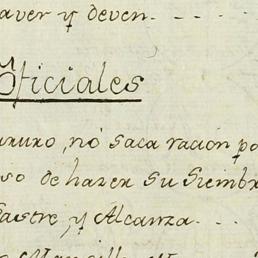 aver y deven....
Oficiales
ruro, no saca racion po
so de hazer su siembr
Sastre, y Alcanza...